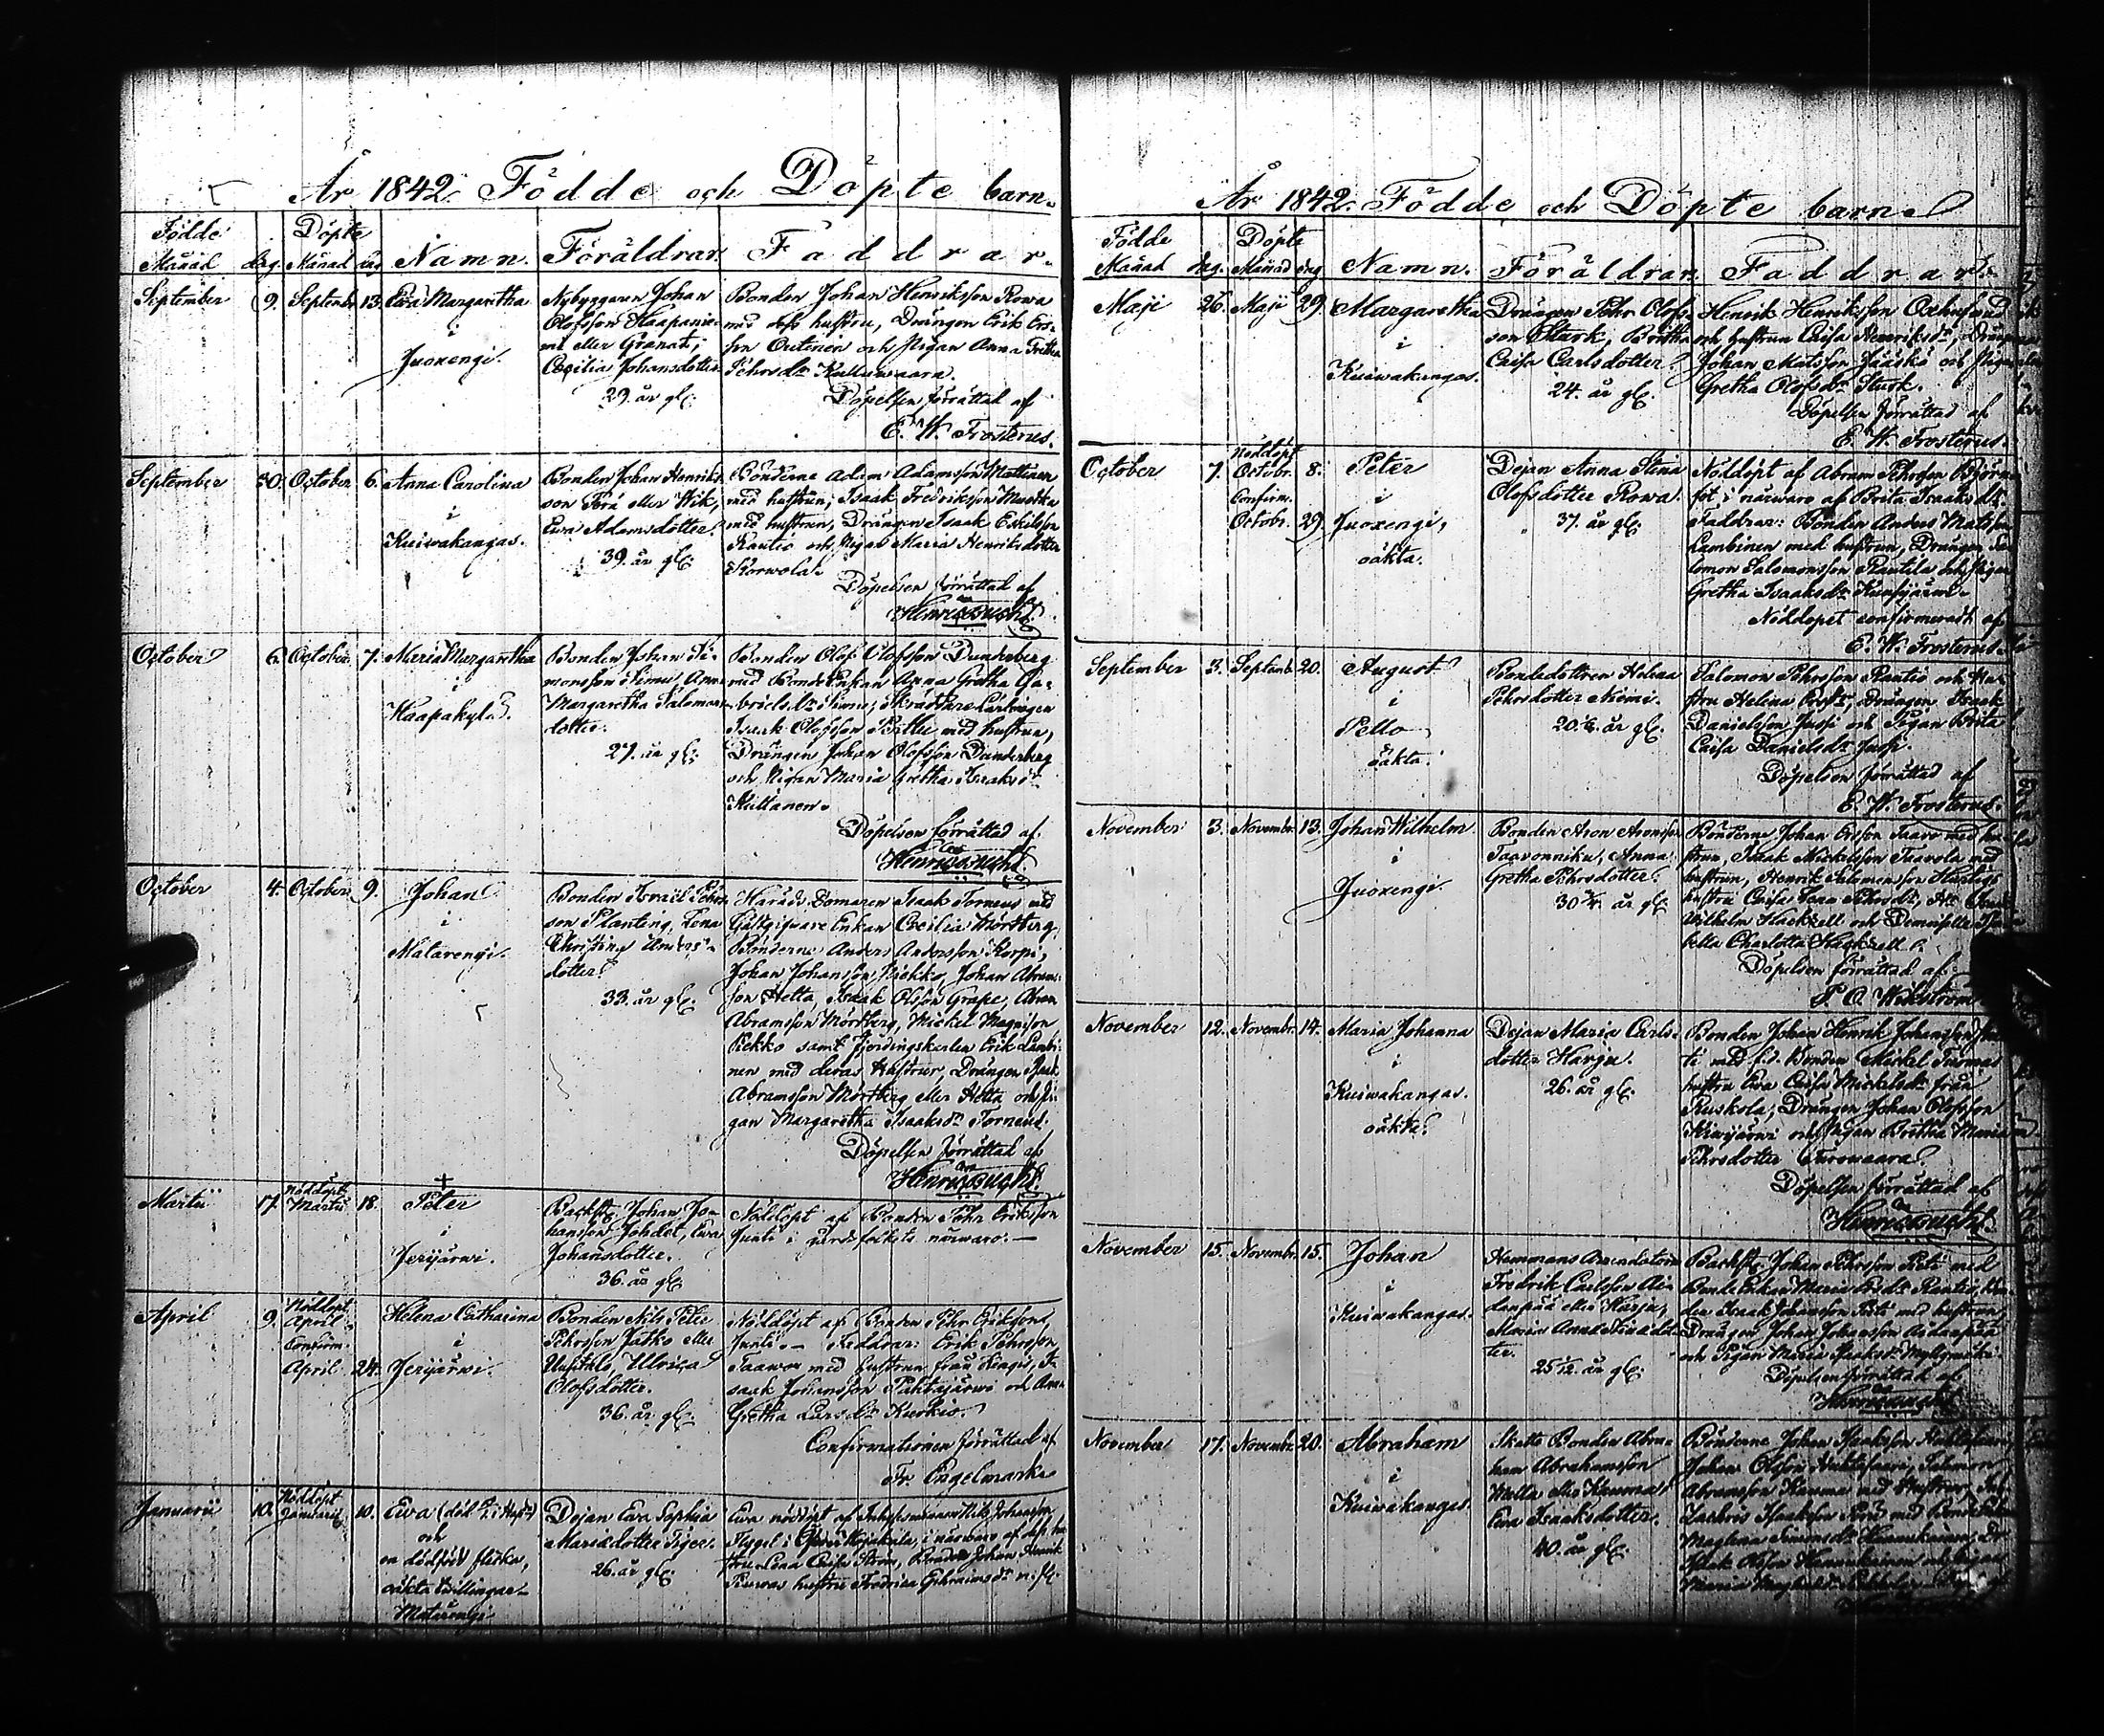 År 1842. Födde och Döpte barn.
Födde Döpte
Månad dag. Månad dag Namn. Föräldrar. Faddrar.
September 9. Septembr 13. Ewa Margaretha
i
Juoxengi.
Nybyggaren Johan
Olofsson Haapanie-
mi eller Granat;
Cecilia Johansdotter.
29. år gl.
Bonden Johan Henriksson Rowa
med dess hustru, Drängen Erik Ers-
son och Pigan Anna Gretha
Pehrsdr Kullunwaara.
Döpelsen förrättad af
E. W. Frosterus.
September 30. October 6. Anna Carolina
i
Kuiwakangas.
Bonden Johan Henriks-
son eller Wik,
Ewa Adamsdotter.
39. år gl.
Bönderne Adam Adamsson Mattinen
med hustru; Isaak Fredriksson
med hustrun, Drängen Isaak Eskilsson
Rautio och Pigan Maria Henriksdotter
Korwola.
Döpelsen förrättad af
October 6. October 7. Maria Margaretha
i
Haapakylä.
Bonden Johan Si-
monsson Simu, Anna
Margaretha Salomons-
dotter.
27. år gl.
Bonden Olof Olofsson Dunderberg
med BondeEnkan Anna Gretha Ga-
brielsdr Simu; Skräddare Lärlingen
Isaak Olofsson med hustrun,
Drängen Johan Olofsson Dunderberg
och Pigan Maria Gretha Isaaksdr
Kultanen.
Döpelsen förrättad af
October 4. October 9. Johan
i
Matarengi.
Bonden Israel Pehrs-
son Planting, Lena
Christina Anders-
dotter
33. år gl.
Härads Domaren Isaak Torneus med
Gästgifvare Enkan Cecilia Mörtberg,
Bönderne Anders Andersson Korpi,
Johan Johansson Piekko, Johan Abram-
son Hetta, Isaak Olsson Grape, Abram
Abramsson Mörtberg, Mickel Magnisson
Piekko samt Fjerdingskarlen Erik Lambi-
nen med deras Hustrur, Drängen Isaak
Abramsson Mörtberg eller Hetta och Pi-
gan Margaretha Isaaksdr Torneus.
Döpelsen förrättad af
Martii 17. Nöddöpt Martii 18. Peter
i
Jerijärwi.
Backstu. Johan Jo-
hansson Johdet, Ewa
Johansdotter.
36. år gl.
Nöddöpt af Bonden Pehr Eriksson
Junti i gårdsfolkets närwaro.
April 9. Nöddöpt April.
Confirm.
April 24. Helena Catharina
i
Jerijärwi.
Bonden Nils Peter
Pehrsson Jatko eller
Ulrica
Olofsdotter.
36. år gl.
Nöddöpt af Bonden Pehr Eriksson
Junti. Faddrar: Erik Pehrsson
Taawo med hustrun från Kiexis, I-
saak Johansson Pahtajärwi och Anna
Gretha Larsdr Kurkio.
Confirmationen förrättad af
Fr. Engelmark
Januarii 10. Nöddöpt Januarii 10. Ewa
och
en dödfödd flicka,
oäkta twillingar
Matarengi
Dejan Ewa Sophia
Mariadotter Tiger.
26. år gl.
Ewa nöddöpt af Nils Johansson
i närwaro af dess hu-
stru Lena Caisa Ström, Bonden Johan Henrik
hustru Fredrica Ephraimsdr
År 1842. Födde och Döpte barn.
Födde Döpte
Månad dag. Månad dag Namn. Föräldrar. Faddrar.
Maji 26. Maji 29. Margaretha
i
Kuiwakangas.
Drängen Pehr Olofs-
son Stark, Britha
Caisa Carlsdotter.
24. år gl.
Henrik Henriksson
och hustrun Caisa Henriksdr, Drängen
Johan Matsson Jääskö och Pigan
Gretha Olofsdr Stark.
Döpelsen förrättad af
E. W. Frosterus.
October 7. Nöddöpt
Octobr. 8.
Confirm.
Octobr. 29. Peter
i
Juoxengi,
oäkta.
Dejan Anna Stina
Olofsdotter Rowa.
37. år gl.
Nöddöpt af Abram Pehrsson Björn-
fot i närwaro af Brita Isaaksdr.
Faddrar: Bonden Anders Matsson
Lambinen med hustrun, Drängen Sa-
lomon Salomonsson Rautila och Pigan
Gretha Isaaksdr
Nöddopet confirmeradt af
E. W. Frosterus.
September 3. Septembr 20. August
i
Pello
oäkta.
Bondedottren Helena
Pehrsdotter Niemi.
20 år gl.
Salomon Pehrsson Rautio och Hu-
stru Helena Drängen Isaak
Danielsson Jussi och Pigan Brita
Caisa Danielsdr Jussi.
Döpelsen förrättad af
E. W. Frosterus.
November 3. Novembr. 13. Johan Wilhelm
i
Juoxengi.
Bonden Aron Aronsson
Taavonniku, Anna
Gretha Pehrsdotter.
30 år gl.
Bönderne Johan Ersson Taavo med hu-
strun, Isaak Mickelsson Taavola med
hustrun, Henrik Salomonsson
hustru Caisa Pehrsdr,
Wilhelm Hackzell och Demoiselle
bella Charlotta Hackzell.
Döpelsen förrättad af
P. O. Wikström
November 12. Novembr. 14. Maria Johanna
i
Kuiwakangas.
oäkta.
Dejan Maria Carls-
dotter Harju.
26. år gl.
Bonden Johan Henrik Johansson
Bonden Mickel
hustru Ewa Caisa Mickelsdr från
Ruskola; Drängen Johan Olofsson
Kiwijärwi och Pigan Britha Maria
Pehrsdotter
Döpelsen förrättad af
November 15. Novembr. 15. Johan
i
Kuiwakangas.
Hemmans Arrendatoren
Fredrik Carlsson Ai-
danpää eller Harju,
Maria Anna Stina dot-
ter.
25 år gl.
Backstu. Johan Pehrsson med
Bonde Enkan Maria Ersdr Rautio, Bon-
den Isaak Johansson med hustrun,
Drängen Johan Johansson Aidanpää
och Pigan Maria Isaaksdr
Döpelsen förrättad af
November 17. Novembr. 20. Abraham
i
Kuiwakangas.
Skatte Bonden Abra-
ham Abrahamsson
eller Kauma
Ewa Isaaksdotter.
40. år gl.
Bönderne Johan Isaaksson
Johan Olsson Salomon
Abramsson Kauma med Hustrur,
Isaksson med
Isak Olsson Hannukainen och Pigan
Maria